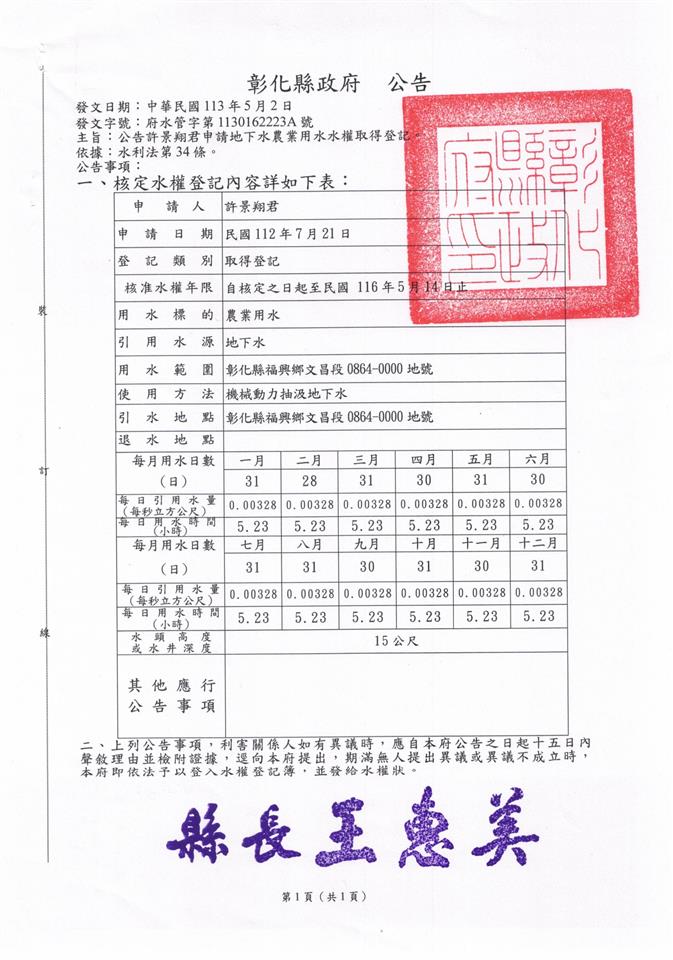 彰化縣政府　公告
發文日期：中華民國 113 年 5 月 2 日
發文字號：府水管字第 1130162223A 號
主旨：公告許景翔君申請地下水農業用水水權取得登記。
依據：水利法第 34 條。
公告事項：
一、核定水權登記內容詳如下表：
申請人 許景翔君
申請日期 民國 112 年 7 月 21 日
登記類別 取得登記
核准水權年限 自核定之日起至民國 116 年 5 月 14 日止
用水標的 農業用水
引用水源 地下水
用水範圍 彰化縣福興鄉文昌段 0864-0000 地號
使用方法 機械動力抽汲地下水
引水地點 彰化縣福興鄉文昌段 0864-0000 地號
退水地點
每月用水日數 一月 二月 三月 四月 五月 六月
（日） 31 28 31 30 31 30
每日引用水量
（每秒立方公尺） 0.00328 0.00328 0.00328 0.00328 0.00328 0.00328
每日用水時間
（小時） 5.23 5.23 5.23 5.23 5.23 5.23
每月用水日數 七月 八月 九月 十月 十一月 十二月
（日） 31 31 30 31 30 31
每日引用水量
（每秒立方公尺） 0.00328 0.00328 0.00328 0.00328 0.00328 0.00328
每日用水時間
（小時） 5.23 5.23 5.23 5.23 5.23 5.23
水頭高度
或水井深度 15 公尺
其他應行
公告事項
二、上列公告事項，利害關係人如有異議時，應自本府公告之日起十五日內
聲敘理由並檢附證據，逕向本府提出，期滿無人提出異議或異議不成立時，
本府即依法予以登入水權登記簿，並發給水權狀。
縣長王惠美
第 1 頁（共 1 頁）
裝
訂
線
彰化縣政府印